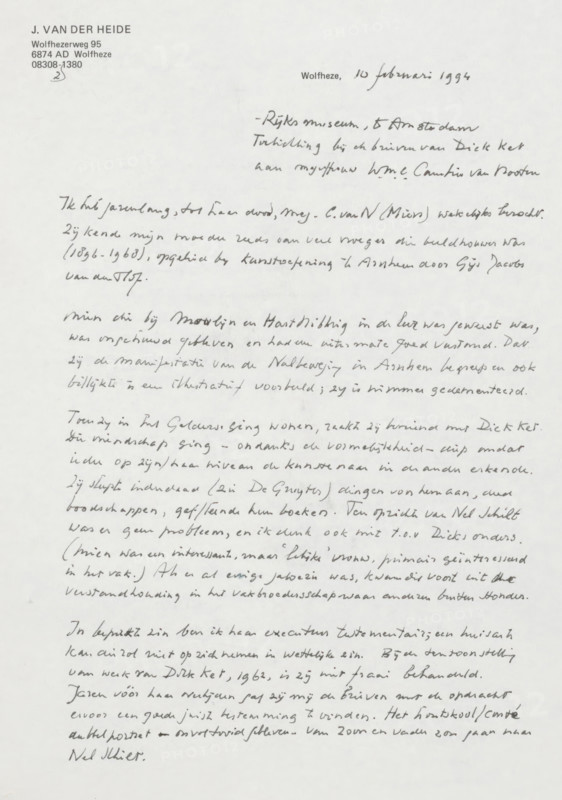 J. VAN DER HEIDE
Wolfhezerweg 95
6874 AD Wolfheze
08308-1380
2)
Wolfheze, 10 februari 1994
- Rijksmuseum, te Amsterdam
Toelichting bij de brieven van Dick Ket
aan mejuffrouw
Ik heb jarenlang, tot haar dood, mej. C. van N (Mies) wekelijks bezocht.
Zij kende mijn moeder reeds van veel vroeger die beeldhouwer was
(1896-1968), opgeleid bij Kunstoefening te Arnhem door Gijs Jacobs
van den Hof.
die bij Moolijn en Hart Nibbrig in de leer was geweest was,
was ongehuwd gebleven en had een uitermate goed verstand. Dat
zij de manifestatie van de Nulbeweging in Arnhem begreep en ook
billijkte is een illustratief voorbeeld; zij is nimmer gedementeerd.
Toen zij in het Gelderse ging wonen, raakte zij bevriend met Dick Ket.
Die vriendschap ging - ondanks de vormelijkheid - diep omdat
ieder op zijn/haar niveau de kunstenaar in de ander erkende.
Zij sleepte inderdaad (zie De Gruyter) dingen voor hem aan, deed
boodschappen, gaf/leende hem boeken. Ten opzichte van Nel Schilt
was er geen probleem, en ik denk ook niet t.o.v Dicks ouders.
(Mien was een interessante, maar vrouw, primair geïnteresseerd
in het vak.) Als er al enige jaloezie was, kwam die voort uit de
verstandhouding in het vakbroederschap waar anderen buiten stonden.
In beperkte zin ben ik haar executeur testementair; een huisarts
kan dit zal niet op zich nemen in wettelijke zin. Bij de tentoonstelling
van werk van Dick Ket, 1962, is zij niet fraai behandeld.
Jaren vóór haar overlijden gaf zij mij de brieven met de opdracht
ervoor een goede juiste bestemming te vinden. Het houtskool/conté
dubbelportret - onvoltooid gebleven - van zoon en vader zou gaan naar
Nel Schilt.